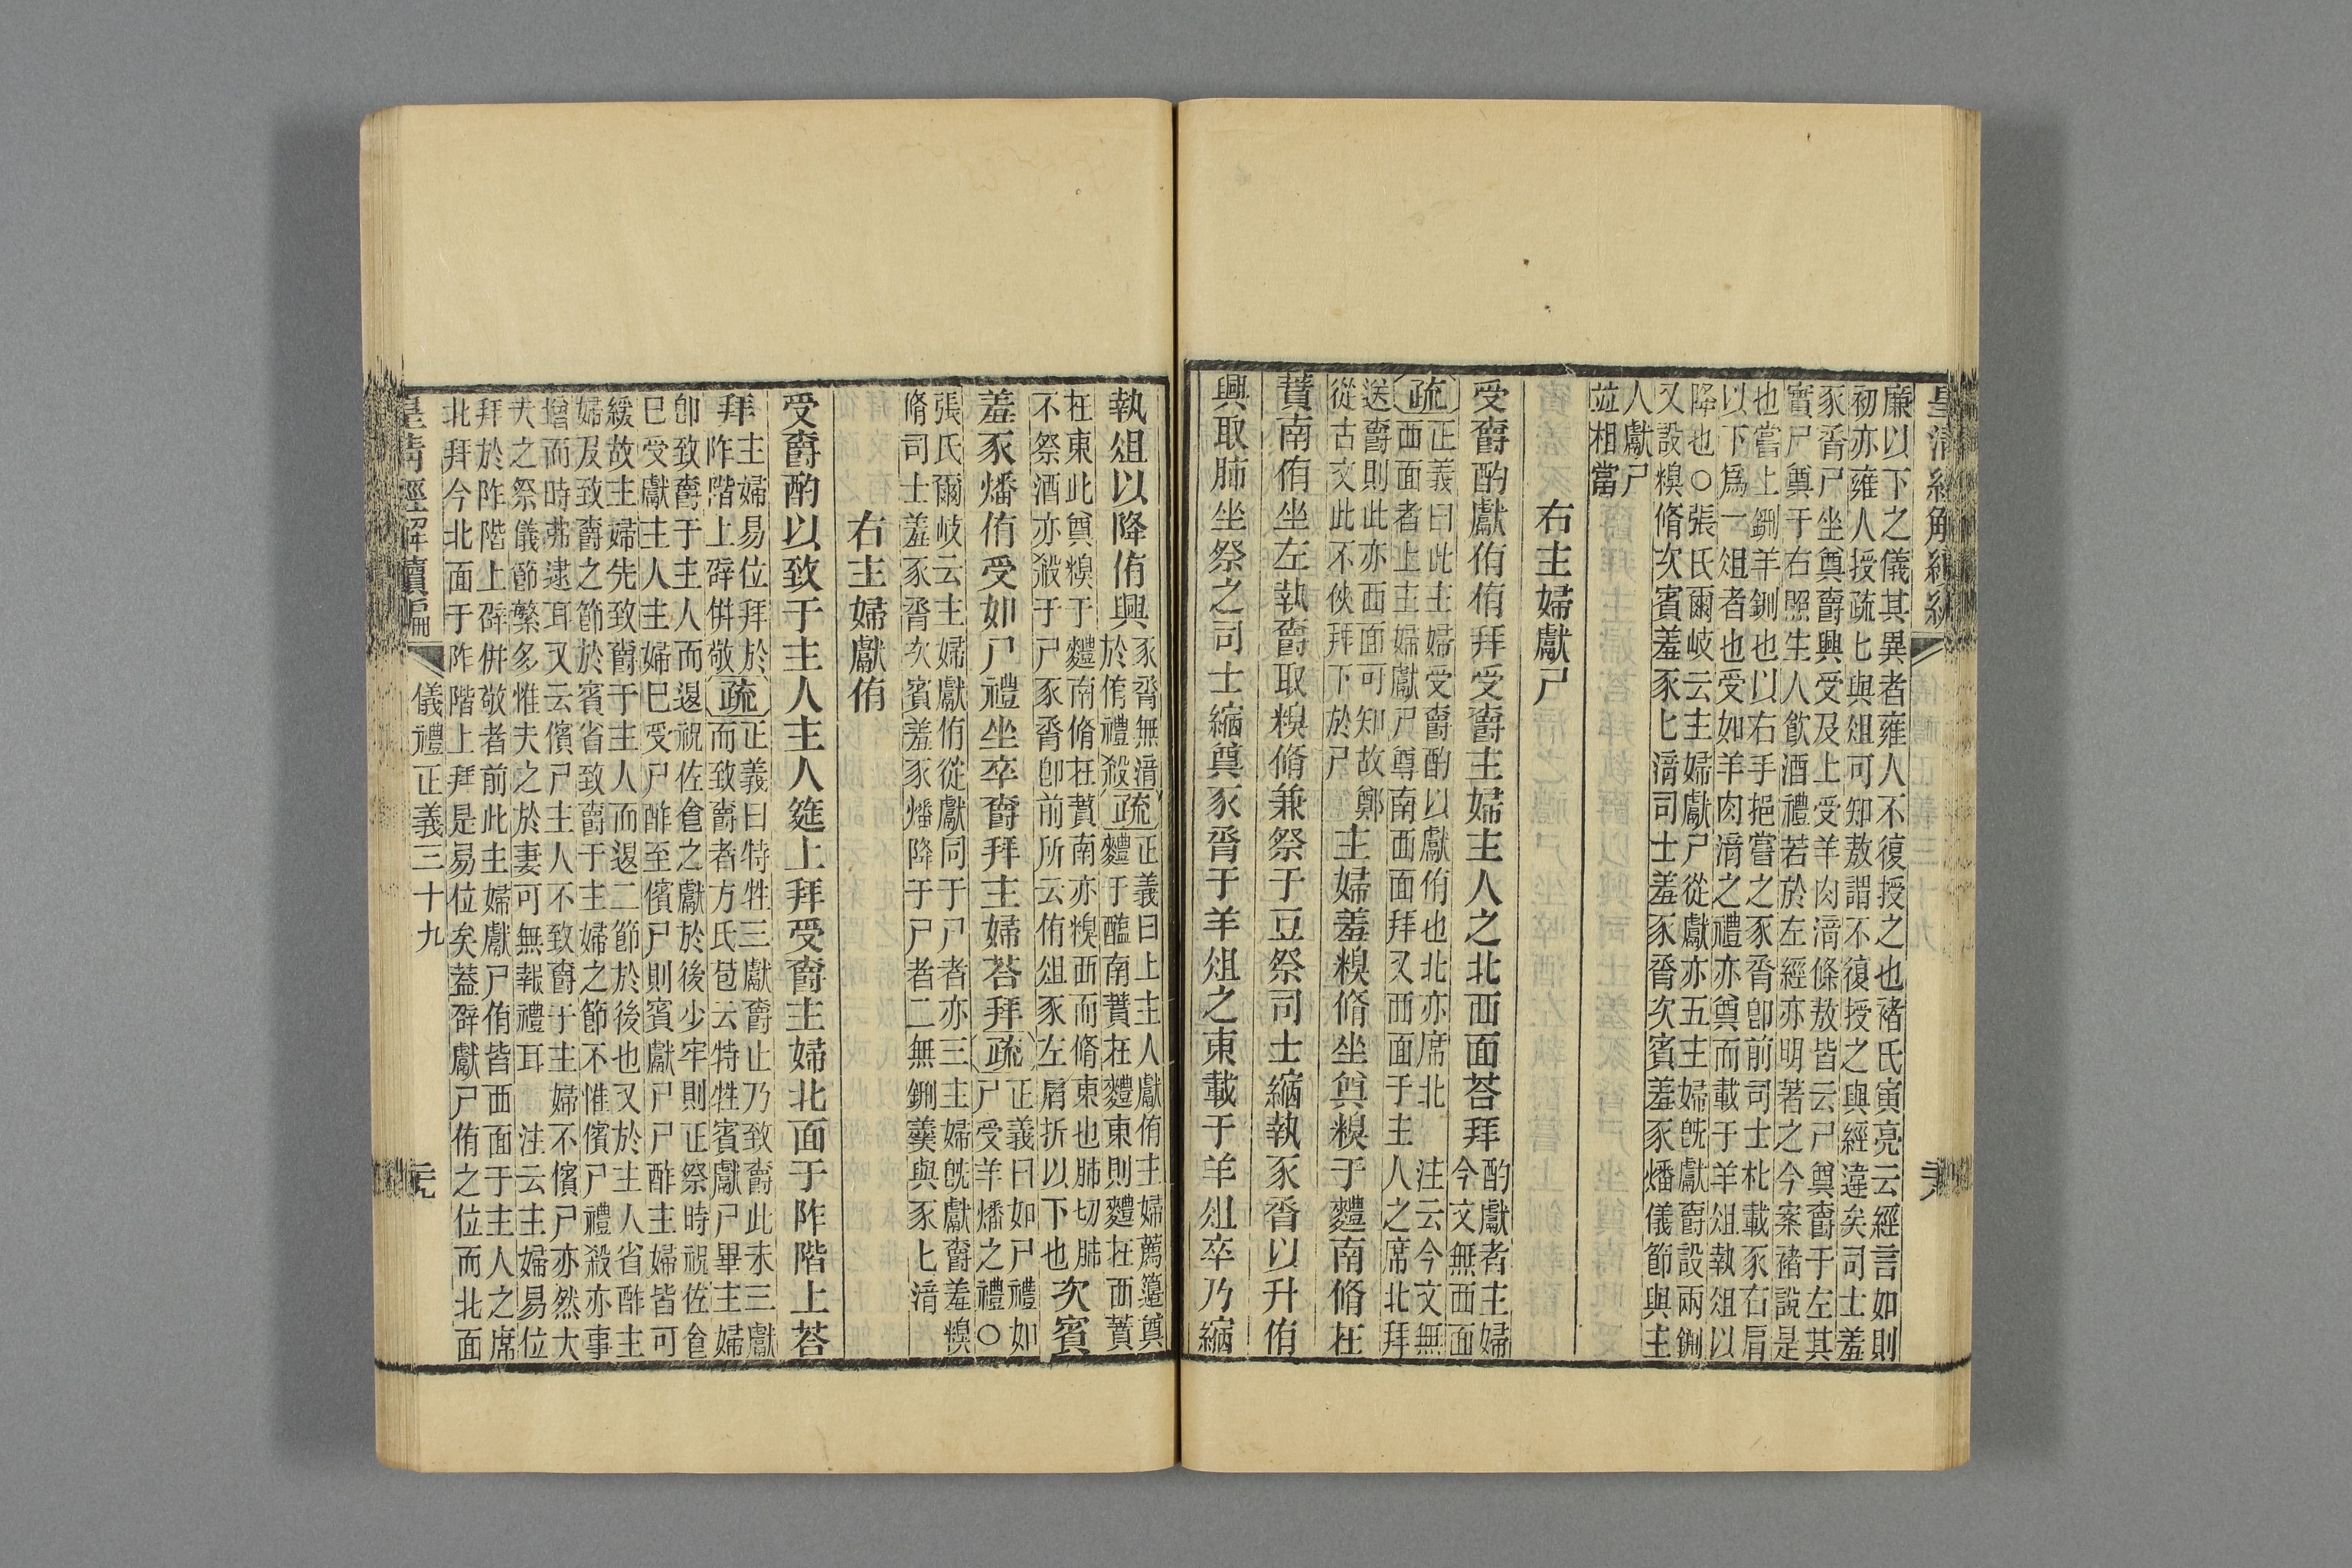 廉以下之儀其異者雍人不復授之也褚氏寅亮云經言如則
初亦雍人授疏匕與俎可知敖謂不復授之與經違矣司士羞
豕脀尸坐奠爵興受及上受羊肉湇條敖皆云尸奠爵于左其
實尸奠于右照生人飲酒禮若於左經亦明著之今案褚說是
也嘗上鉶羊鉶也以右手挹嘗之豕脀卽前司士朼載豕右肩
以下爲一俎者也受如羊肉湇之禮亦奠而載于羊俎執俎以
降也○張氏爾岐云主婦獻尸從獻亦五主婦旣獻爵設兩鉶
又設糗脩次賓羞豕匕湇司士羞豕脀次賓羞豕燔儀節與主
人獻尸
竝相當
右主婦獻尸
受爵酌獻侑侑拜受爵主婦主人之北西面荅拜酌獻者主婦
今文無西面
疏正義曰此主婦受爵酌以獻侑也北亦席北 注云今文無
西面者上主婦獻尸尊南西面拜又西面于主人之席北拜
送爵則此亦西面可知故鄭
從古文此不俠拜下於尸
主婦羞糗脩坐奠糗于麷南脩在
蕡南侑坐左執爵取糗脩兼祭于豆祭司士縮執豕脀以升侑
興取肺坐祭之司士縮奠豕脀于羊俎之東載于羊俎卒乃縮
執俎以降侑興豕脀無湇
於侑禮殺疏正義曰上主人獻侑主婦薦籩奠
麷于醢南蕡在麷東則麷在西蕡
在東此奠糗于麷南脩在蕡南亦糗西而脩東也肺切肺
不祭酒亦殺于尸豕脀卽前所云侑俎豕左肩折以下也
次賓
羞豕燔侑受如尸禮坐卒爵拜主婦荅拜疏正義曰如尸禮如
尸受羊燔之禮○
張氏爾岐云主婦獻侑從獻同于尸者亦三主婦旣獻爵羞糗
脩司士羞豕脀次賓羞豕燔降于尸者二無鉶羹與豕匕湇
右主婦獻侑
受爵酌以致于主人主人筵上拜受爵主婦北面于阼階上荅
拜主婦易位拜於
阼階上辟倂敬疏正義曰特牲三獻爵止乃致爵此未三獻
而致爵者方氏苞云特牲賓獻尸畢主婦
卽致爵于主人而退祝佐食之獻於後少牢則正祭時祝佐食
巳受獻主人主婦巳受尸酢至儐尸則賓獻尸尸酢主婦皆可
緩故主婦先致爵于主人而退二節於後也又於主人省酢主
婦及致爵之節於賓省致爵于主婦之節不惟儐尸禮殺亦事
增而時弗逮耳又云儐尸主人不致爵于主婦不儐尸亦然大
夫之祭儀節繁多惟夫之於妻可無報禮耳 注云主婦易位
拜於阼階上辟倂敬者前此主婦獻尸侑皆西面于主人之席
北拜今北面于阼階上拜是易位矣蓋辟獻尸侑之位而北面
皇清經解續編
儀禮正義三十九